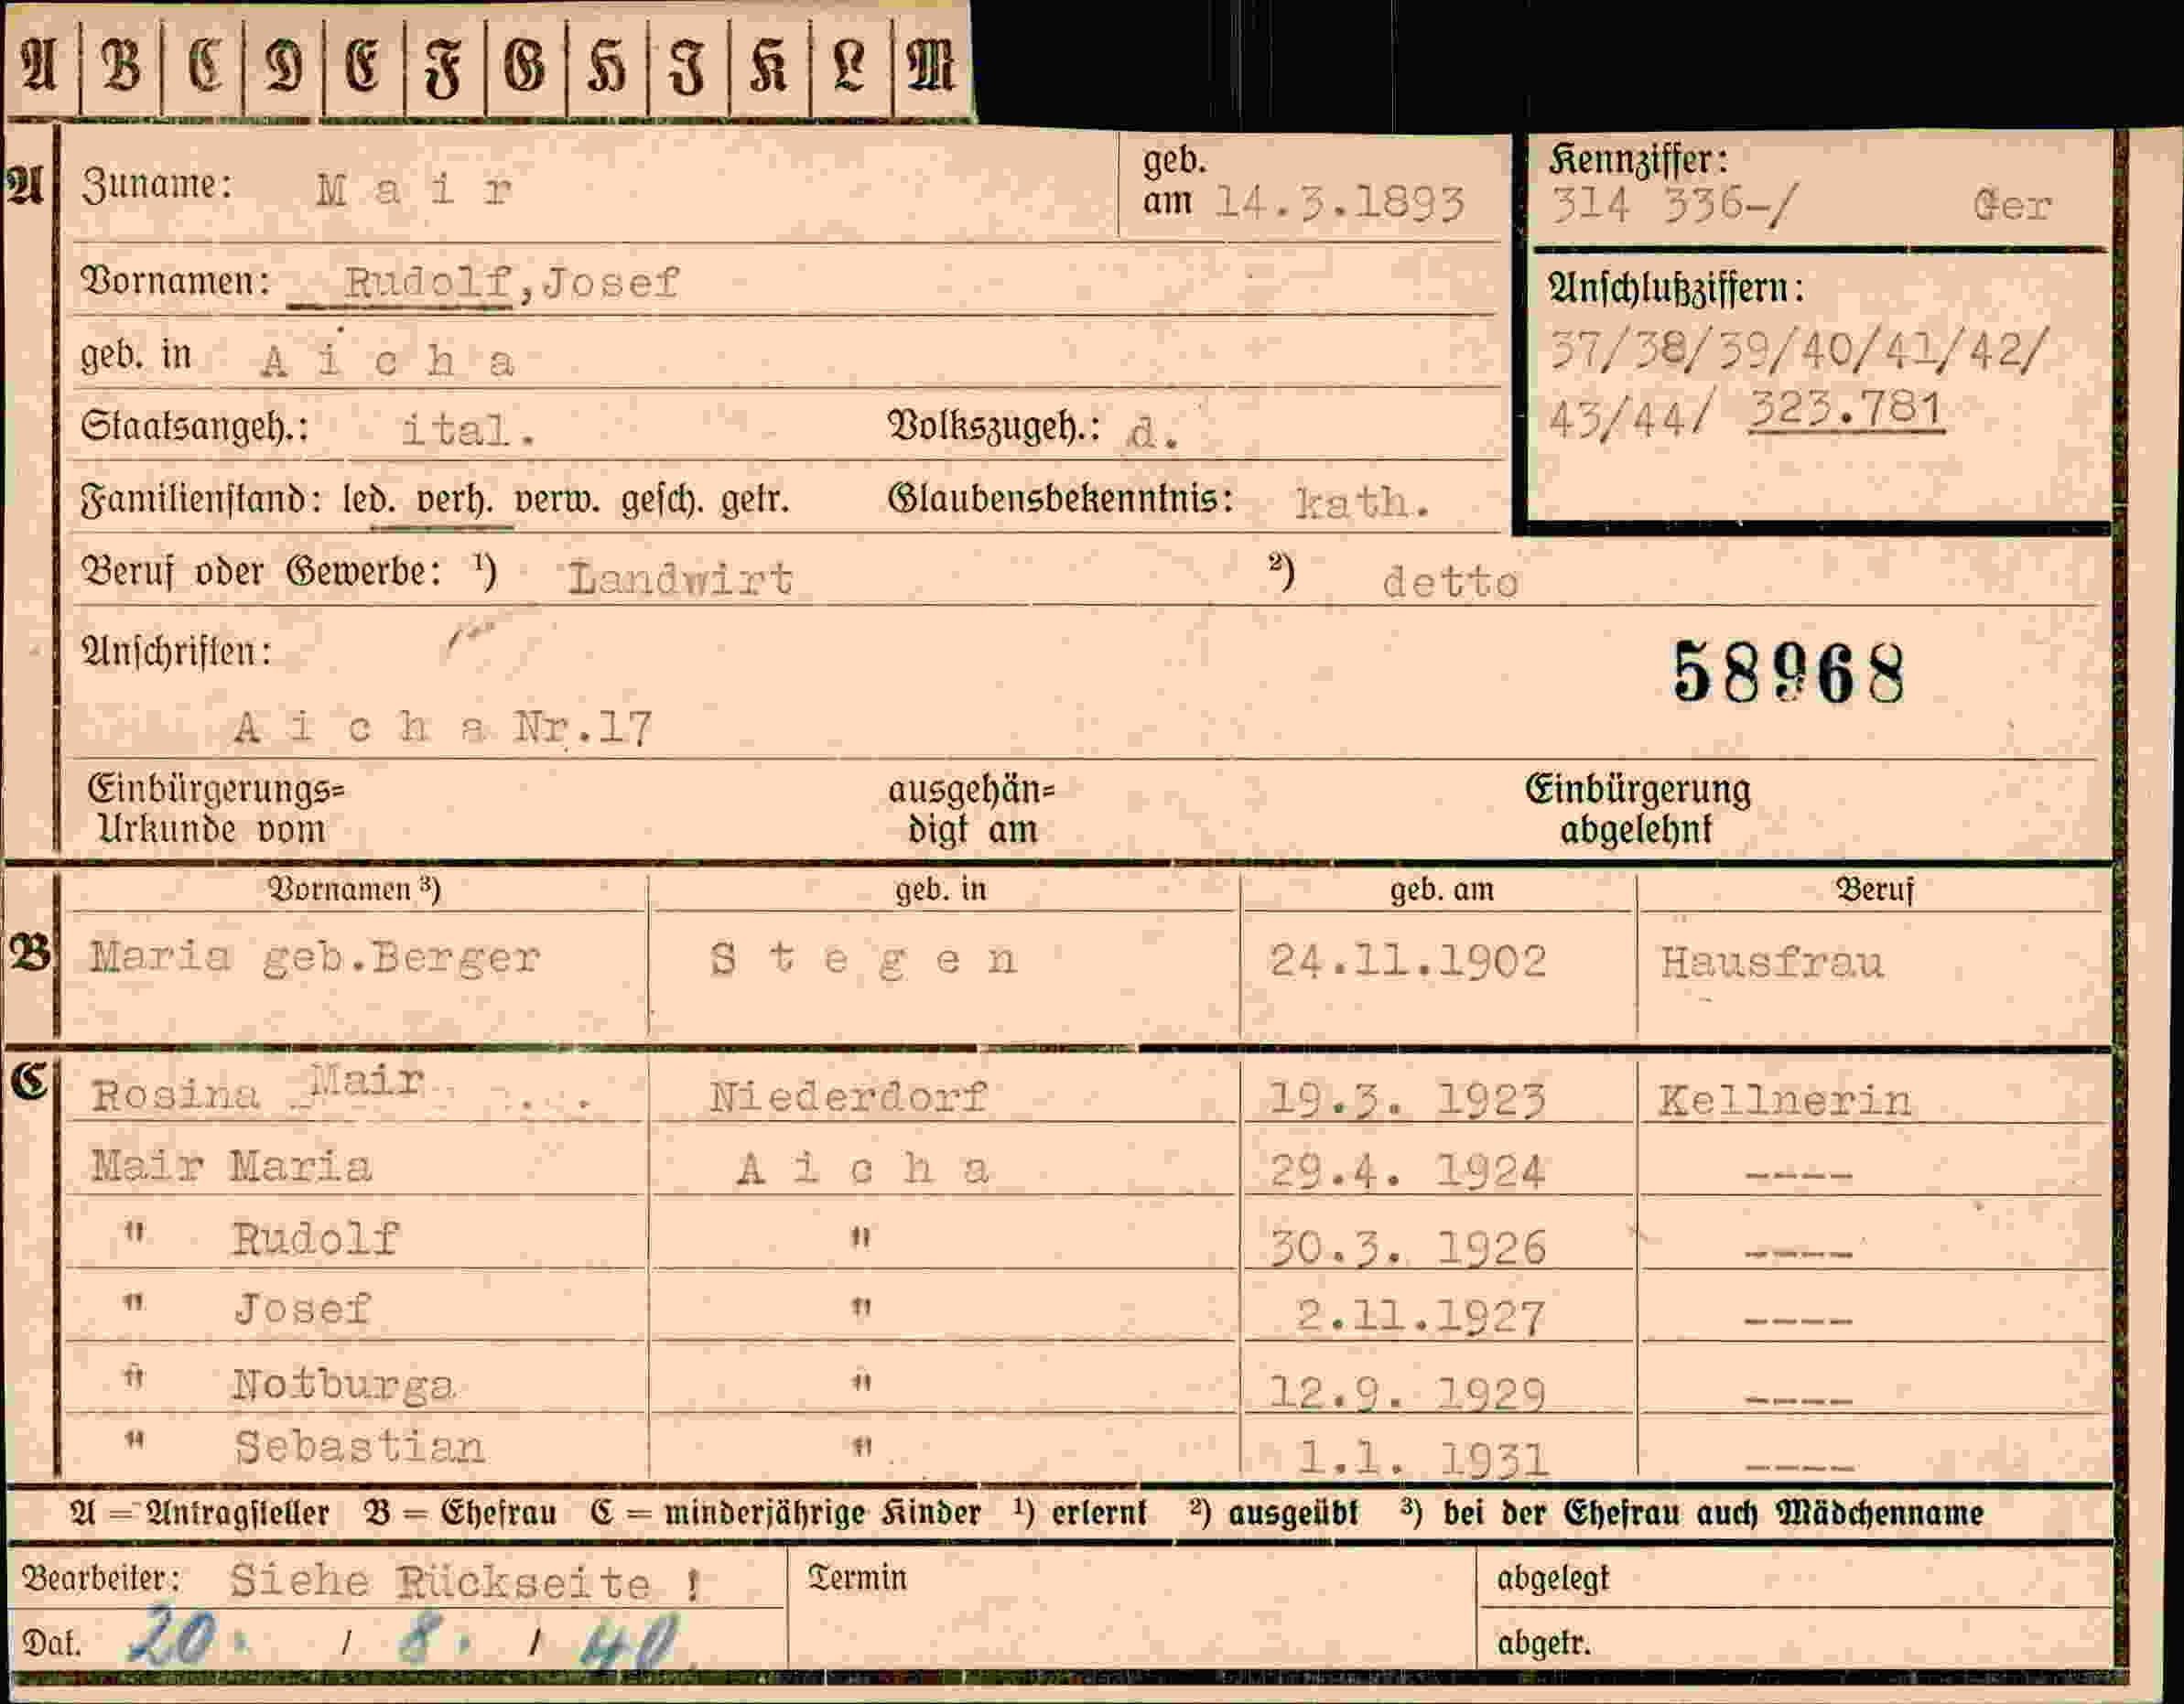 A B C D E F G H I K L M
A Zuname: Mair geb. am 14.3.1893
Kennziffer: 314 336-/ Ger
Vornamen: Rudolf, Josef
Anschlußziffern:
37/38/39/40/41/42/
43/44/ 323.781
geb. in Aicha
Staatsangeh.: ital. Volkszugeh.: d.
Familienstand: led. verh. verw. gesch. getr. Glaubensbekenntnis: kath.
Beruf oder Gewerbe: ¹) Landwirt ²) detto
Anschriften:
58968
Aicha Nr.17
Einbürgerungs= ausgehän= Einbürgerung
Urkunde vom digt am abgelehnt
Vornamen ³) geb. in geb. am Beruf
B Maria geb.Berger Stegen 24.11.1902 Hausfrau
C Rosina Mair Niederdorf 19.3. 1923 Kellnerin
Mair Maria Aicha 29.4. 1924 ----
" Rudolf " 30.3. 1926 ----
" Josef " 2.11.1927 ----
" Notburga " 12.9. 1929 ----
" Sebastian " 1.1. 1931 ----
A = Antragsteller B = Ehefrau C = minderjährige Kinder ¹) erlernt ²) ausgeübt ³) bei der Ehefrau auch Mädchenname
Bearbeiter: Siehe Rückseite ! Termin abgelegt
Dat. 20. / 8. / 40 abgetr.